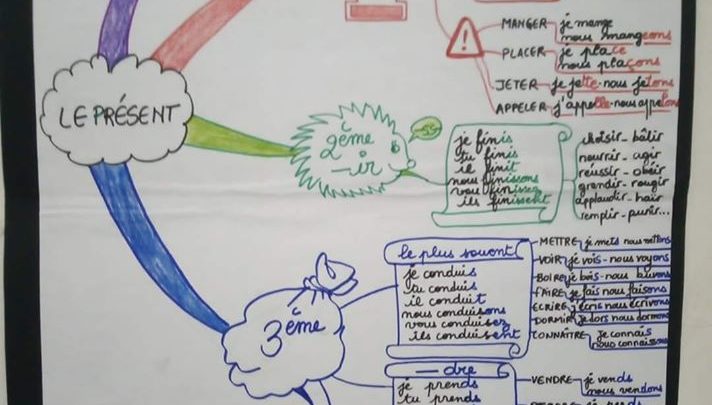 LE PRÉSENT
MANGER je mange
nous mangeons
PLACER je place
nous plaçons
JETER je jette - nous jetons
APPELER j'appelle - nous appelons
2ème
-ir
-ss-
je finis
tu finis
il finit
nous finissons
vous finissez
ils finissent
choisir - bâtir
nourrir - agir
réussir - obéir
grandir - rougir
applaudir - haïr
remplir - punir...
3ème
le plus souvent
je conduis
tu conduis
il conduit
nous conduisons
vous conduisez
ils conduisent
METTRE je mets nous mettons
VOIR je vois - nous voyons
BOIRE je bois - nous buvons
FAIRE je fais nous faisons
ECRIRE j'écris nous écrivons
DORMIR je dors nous dormons
CONNAÎTRE je connais
nous connaissons
-dre
je prends
tu prends
VENDRE je vends
nous vendons